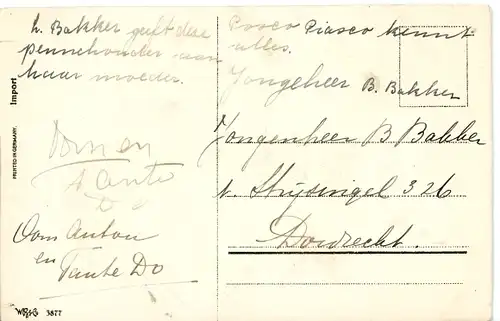 L. Bakker geeft deze
pennehouder aan
haar moeder.
Import
PRINTED IN GERMANY.
Oom en
Tante
D
Oom Anton
en
Tante Do
3877
Posco Piasco kennt
alles.
Jongeheer B. Bakker
Jongenheer B Bakker
Singel 326
Dordrecht.